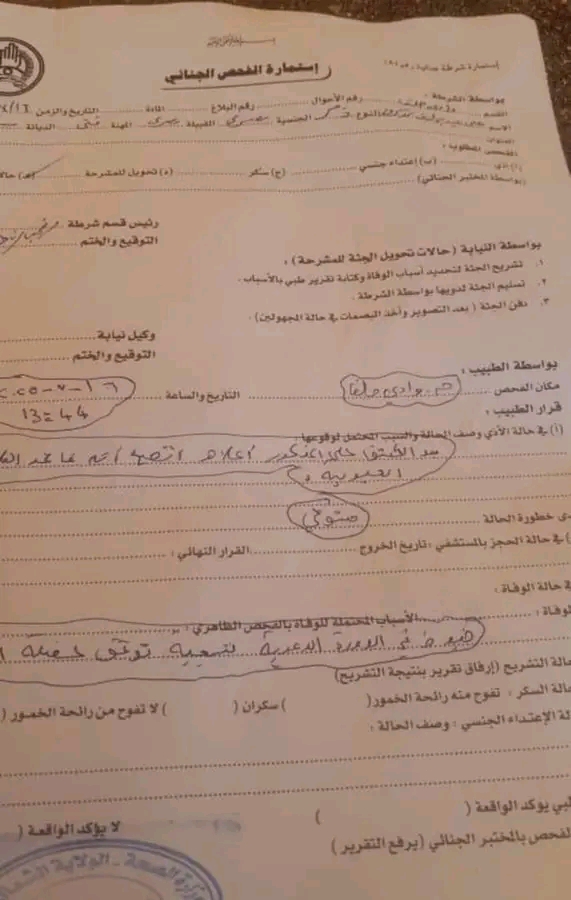 استمارة شرطة جنائية رقم
إستمارة الفحص الجنائي
بواسطة الشرطة :
القسم رقم الأحوال رقم البلاغ المادة التاريخ والزمن
الاسم النوع ذكر الجنسية مصري القبيلة مصري المهنة الديانة
العنوان
الفحص المطلوب :
(أ) أذى (ب) إعتداء جنسي (ج) سكر (د) تحويل للمشرحة (هـ) حالا
(بواسطة المختبر الجنائي)
رئيس قسم شرطة
التوقيع والختم
بواسطة النيابة (حالات تحويل الجثة للمشرحة) :
١. تشريح الجثة لتحديد أسباب الوفاة وكتابة تقرير طبي بالأسباب.
٢. تسليم الجثة لذويها بواسطة الشرطة.
٣. دفن الجثة (بعد التصوير وأخذ البصمات في حالة المجهولين).
وكيل نيابة
التوقيع والختم
بواسطة الطبيب :
مكان الفحص وادي حلفا التاريخ والساعة
13:44
قرار الطبيب :
(أ) في حالة الأذى وصف الحالة والسبب المحتمل لوقوعها
بعد الكشف على المذكور أعلاه اتضح أنه
الحيوية
متوفي
دى خطورة الحالة
) في حالة الحجز بالمستشفى : تاريخ الخروج القرار النهائي :
في حالة الوفاة :
الوفاة : الأسباب المحتملة للوفاة بالفحص الظاهري :
هبوط في الدورة الدموية نتيجة توقف عضلة ا
حالة التشريح (إرفاق تقرير بنتيجة التشريح)
حالة السكر : تفوح منه رائحة الخمور ( ) سكران ( ) لا تفوح من رائحة الخمور (
لة الإعتداء الجنسي : وصف الحالة :
لبي يؤكد الواقعة ( ) لا يؤكد الواقعة (
لفحص بالمختبر الجنائي (يرفع التقرير)
وزارة الصحة - الولاية الشما